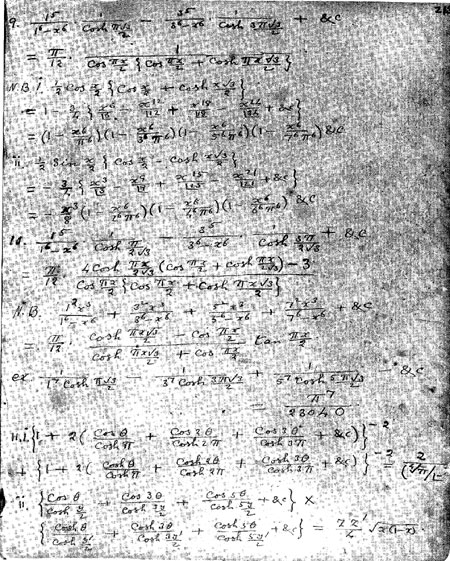 9. 1^5/(1^6-x^6) · 1/cosh(π√3/2) - 3^5/(3^6-x^6) · 1/cosh(3π√3/2) + &c
= π/12 · 1/(cos(πx/2) {cos(πx/2) + cosh(πx√3/2)})
N.B. i. ½ cos x/2 {cos x/2 + cosh x√3/2}
= (1 - x^6/π^6)(1 - x^6/3^6π^6)(1 - x^6/5^6π^6)(1 - x^6/7^6π^6) &c
ii. ½ sin x/2 {cos x/2 - cosh x√3/2}
= - x^3/8 (1 - x^6/2^6π^6)(1 - x^6/4^6π^6)(1 - x^6/6^6π^6) &c
10. 1^5/(1^6-x^6) · 1/cosh(π/2√3) - 3^5/(3^6-x^6) · 1/cosh(3π/2√3) + &c
= π/12 · (4 cosh(πx/2√3) (cos(πx/2) + cosh(πx/2√3)) - 3)/(cos(πx/2) {cos(πx/2) + cosh(πx√3/2)})
N.B. 1^2x^3/(1^6-x^6) + 3^2x^3/(3^6-x^6) + 5^2x^3/(5^6-x^6) + 7^2x^3/(7^6-x^6) + &c
= π/12 · (cosh(πx√3/2) - cos(πx/2))/(cosh(πx√3/2) + cos(πx/2)) tan(πx/2)
ex. 1/(1^7 cosh(π√3/2)) - 1/(3^7 cosh(3π√3/2)) + 1/(5^7 cosh(5π√3/2)) - &c
= π^7/23040
11. i. {1 + 2(cosθ/coshπ + cos2θ/cosh2π + cos3θ/cosh3π + &c)}^-2
+ {1 + 2(coshθ/coshπ + cosh2θ/cosh2π + cosh3θ/cosh3π + &c)}^-2
ii. {cosθ/cosh(y/2) + cos3θ/cosh(3y/2) + cos5θ/cosh(5y/2) + &c} ×
{coshθ/cosh(y'/2) + cosh3θ/cosh(3y'/2) + cosh5θ/cosh(5y'/2) + &c} = zz'/4 √x(1-x).